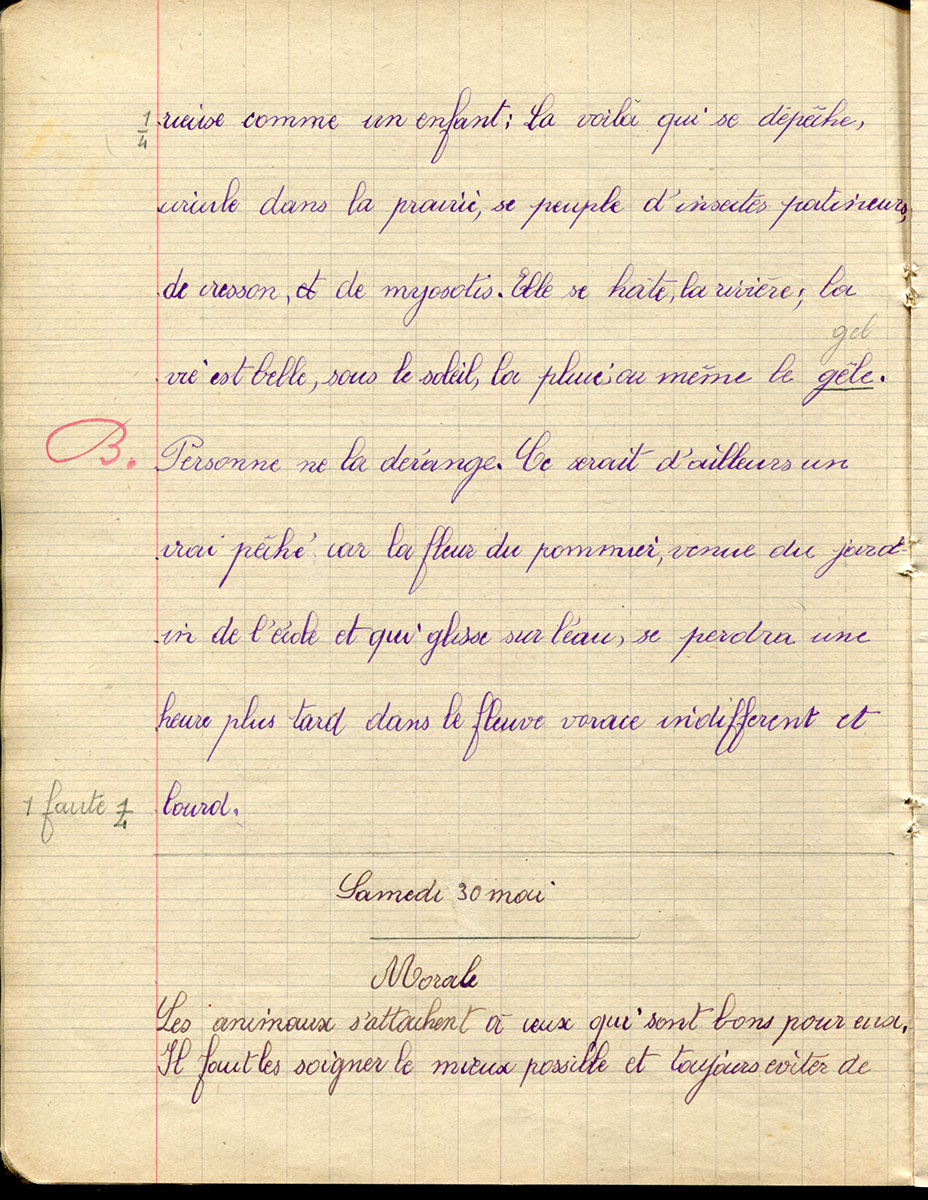 1/4 rieuse comme un enfant; La voilà qui se dépêche,
circule dans la prairie, se peuple d'insectes patineurs,
de cresson, et de myosotis. Elle se hâte, la rivière; la
gel
vie est belle, sous le soleil, la pluie, ou même le gêle.
B. Personne ne la dérange. Ce serait d'ailleurs un
vrai pêché car la fleur du pommier, venue du jard-
in de l'école et qui glisse sur l'eau, se perdra une
heure plus tard dans le fleuve vorace indifferent et
1 faute 1/4 lourd.
Samedi 30 mai
Morale
Les animaux s'attachent à ceux qui sont bons pour eux.
Il faut les soigner le mieux possible et toujours eviter de